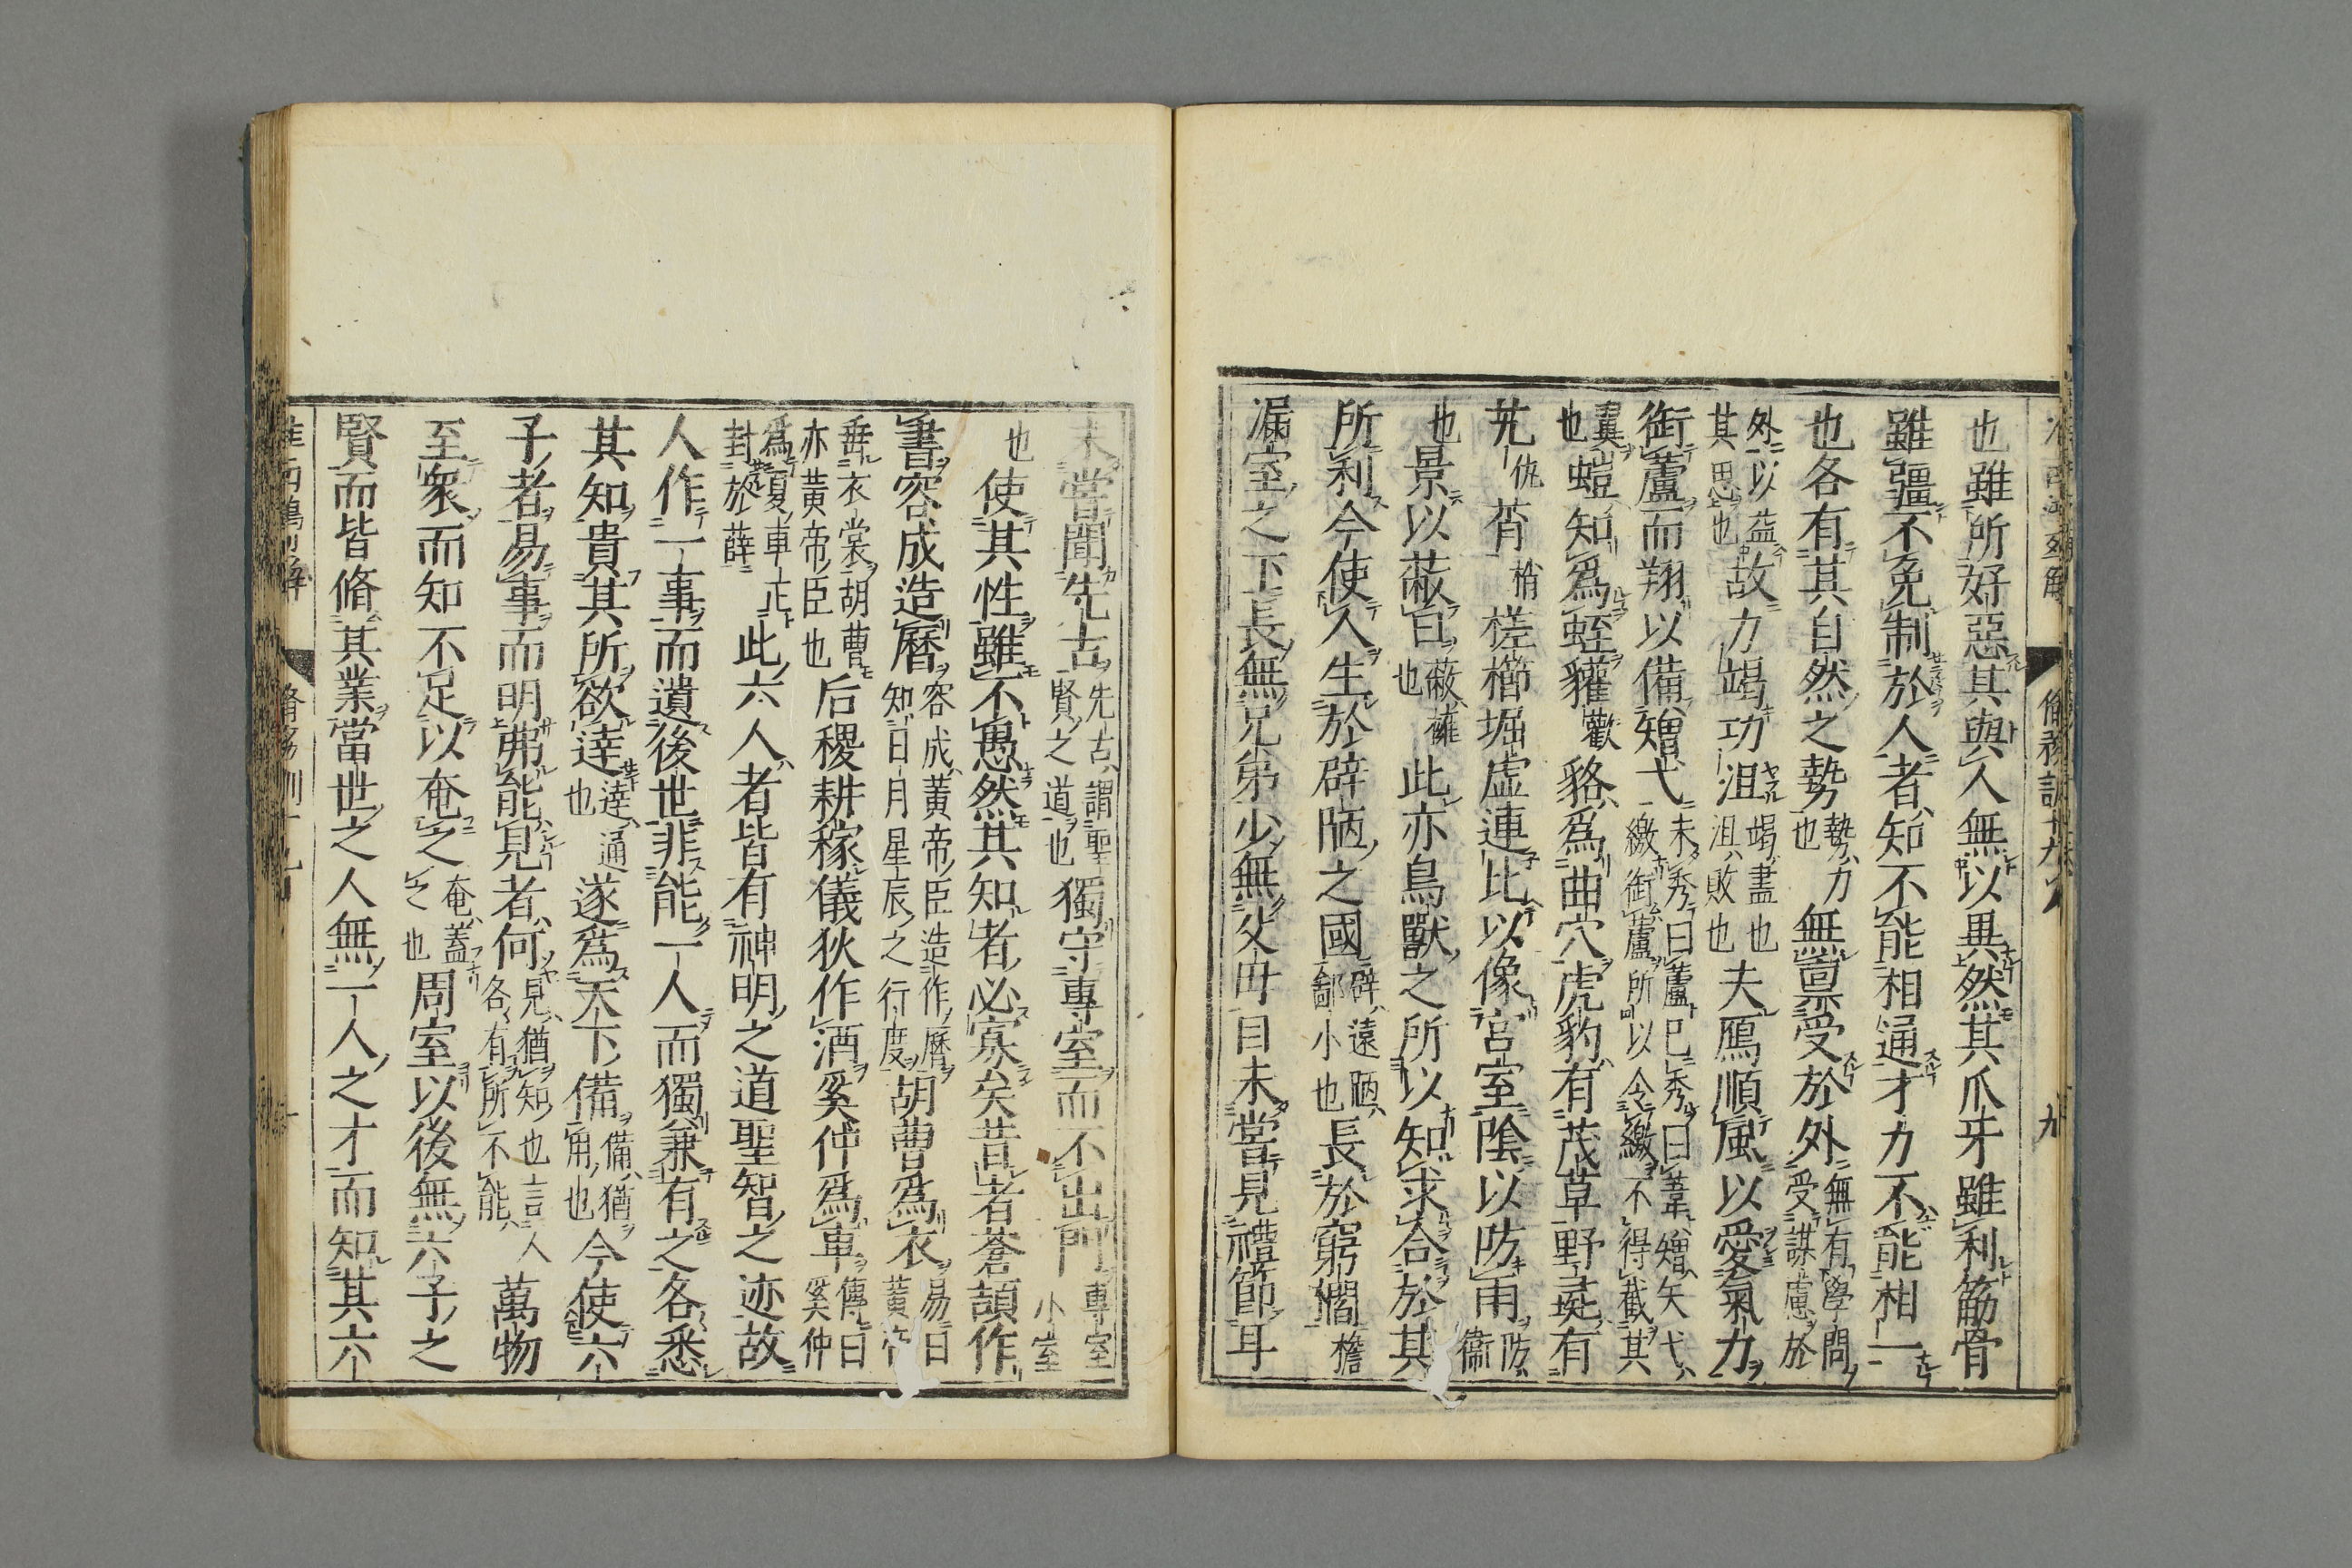 也雖所好惡其與人無以異然其爪牙雖利筋骨
雖彊不免制於人者知不能相通才力不能相一
也各有其自然之勢勢力也無稟受於外無有學問受謀慮於
外以益其思也故力竭功沮竭盡也沮敗也夫鴈順風以愛氣力
銜蘆而翔以備矰弋未秀曰蘆已秀曰葦矰矢弋繳銜蘆所以令繳不得截其
翼也螘知爲蛭貛歡貉爲曲穴虎豹有茂草野彘有
艽仇莦梢槎櫛堀虛連比以像宮室陰以防雨防衞
也景以蔽日蔽擁也此亦鳥獸之所以知求合於其
所利今使人生於辟陋之國辟遠陋鄙小也長於窮櫚檐
漏室之下長無兄弟少無父毋目未嘗見禮節耳
脩務訓十九
未嘗聞先古先古謂聖賢之道也獨守專室而不出門專室小室
也使其性雖不愚然其知者必寡矣昔者蒼頡作
書容成造曆容成黃帝臣造作曆知日月星辰之行度胡曹爲衣易曰黃帝
垂衣裳胡曹亦黃帝臣也后稷耕稼儀狄作酒奚仲爲車傳曰奚仲
爲夏車正封於薛此六人者皆有神明之道聖智之迹故
人作一事而遺後世非能一人而獨兼有之各悉
其知貴其所欲逹逹通也遂爲天下備備猶用也今使六
子者易事而明弗能見者何見猶知也言人各有所不能萬物
至衆而知不足以奄之奄蓋之也周室以後無六子之
賢而皆脩其業當世之人無一人之才而知其六